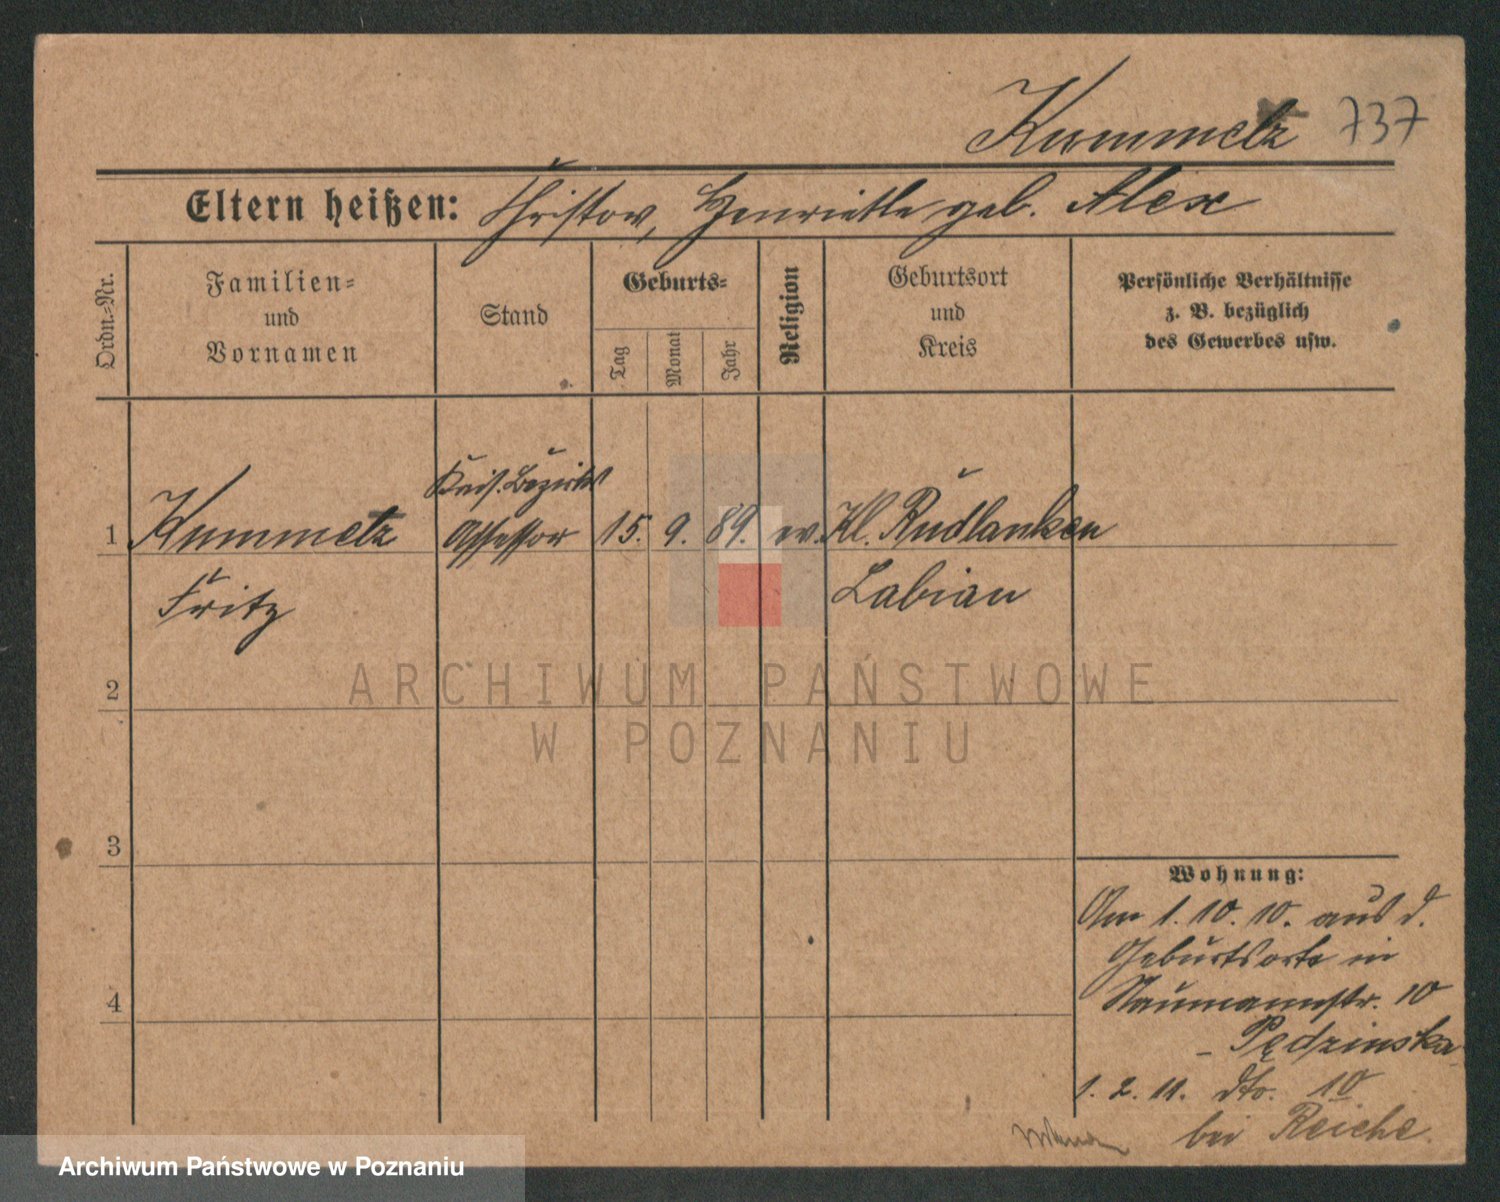 Kummetz 737
Eltern heißen: Christow, Henriette geb. Alex
Ordn.=Nr.
Familien=
und
Vornamen
Stand
Geburts=
Tag
Monat
Jahr
Religion
Geburtsort
und
Kreis
Persönliche Verhältnisse
z. B. bezüglich
des Gewerbes usw.
Bezirks
1 Kummetz Assessor 15. 9. 89. ev. Kl. Rudlauken
Fritz Labiau
2
3
4
Wohnung:
Am 1. 10. 10. aus d.
Geburtsorte in
Naumannstr. 10
- Pędzinska
1. 2. 11. dto. 10
bei Reiche.
ARCHIWUM PAŃSTWOWE
W POZNANIU
Archiwum Państwowe w Poznaniu